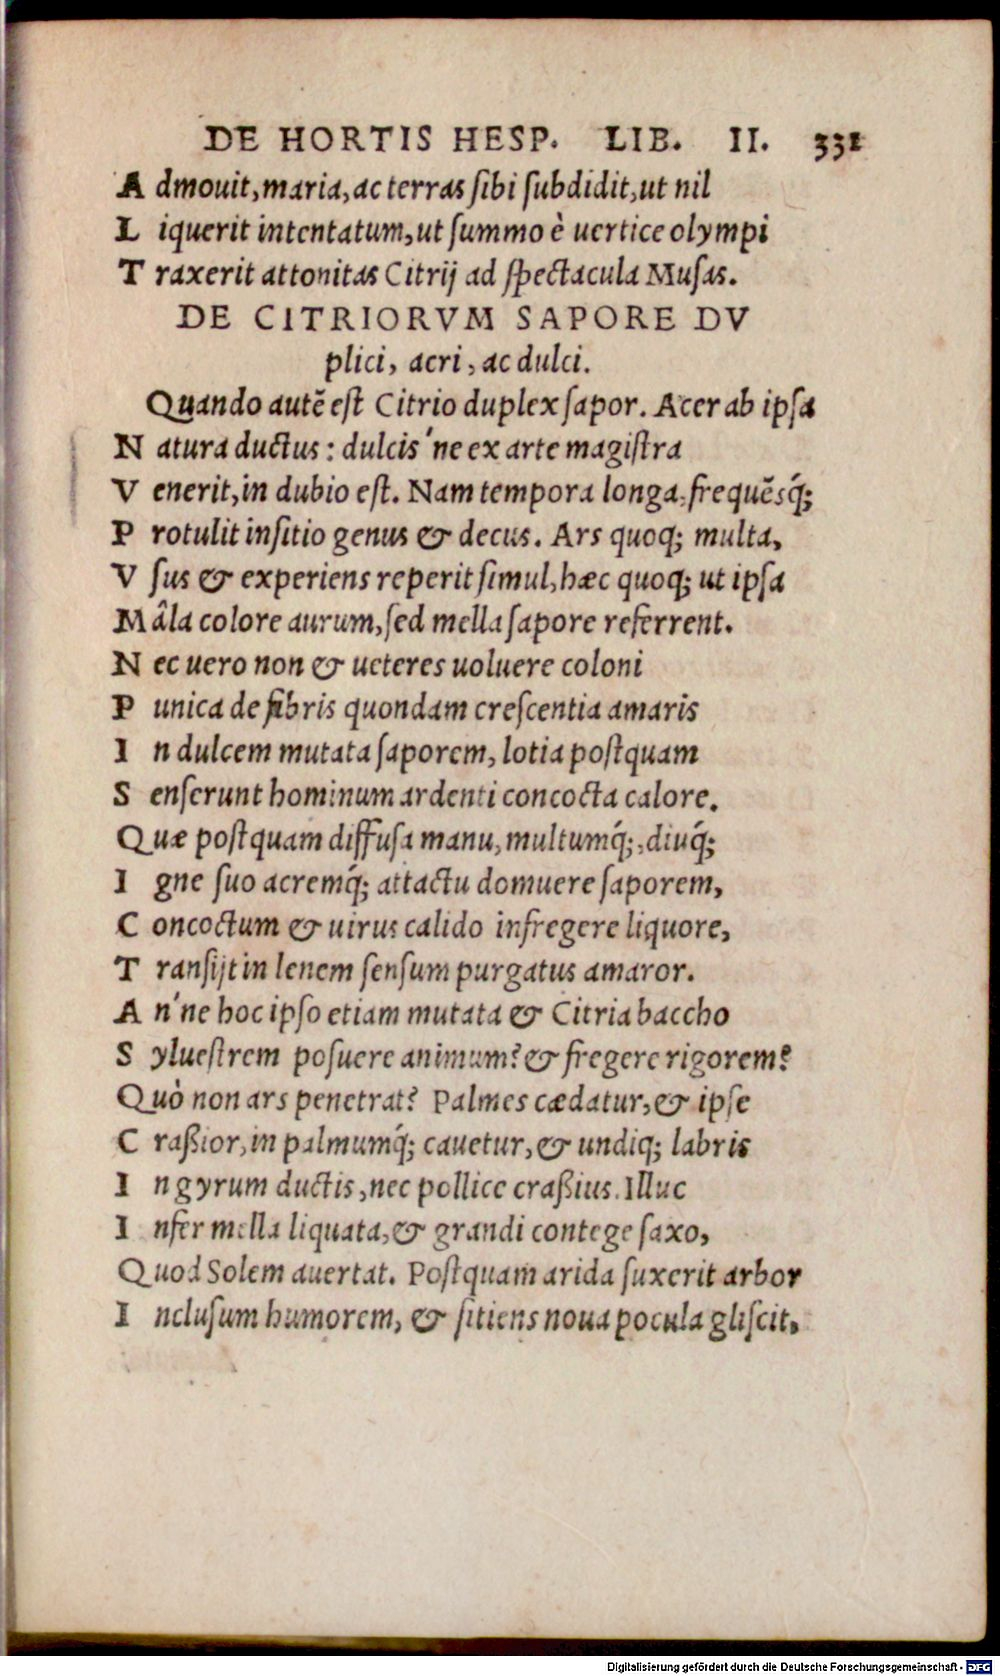 DE HORTIS HESP. LIB. II. 331
Admouit, maria, ac terras sibi subdidit, ut nil
Liquerit intentatum, ut summo è uertice olympi
Traxerit attonitas Citrij ad spectacula Musas.
DE CITRIORVM SAPORE DV
plici, acri, ac dulci.
Quando autē est Citrio duplex sapor. Acer ab ipsa
Natura ductus: dulcis'ne ex arte magistra
Venerit, in dubio est. Nam tempora longa, frequēsq́;
Protulit insitio genus & decus. Ars quoq; multa,
Vsus & experiens reperit simul, hæc quoq; ut ipsa
Mâla colore aurum, sed mella sapore referrent.
Nec uero non & ueteres uoluere coloni
Punica de fibris quondam crescentia amaris
In dulcem mutata saporem, lotia postquam
Senserunt hominum ardenti concocta calore.
Quæ postquam diffusa manu, multumq́;, diuq́;
Igne suo acremq́; attactu domuere saporem,
Concoctum & uirus calido infregere liquore,
Transijt in lenem sensum purgatus amaror.
An'ne hoc ipso etiam mutata & Citria baccho
Syluestrem posuere animum? & fregere rigorem?
Quò non ars penetrat? Palmes cædatur, & ipse
Craßior, in palmumq́; cauetur, & undiq; labris
In gyrum ductis, nec pollice craßius. Illuc
Infer mella liquata, & grandi contege saxo,
Quod Solem auertat. Postquam arida suxerit arbor
Inclusum humorem, & sitiens noua pocula gliscit,
Digitalisierung gefördert durch die Deutsche Forschungsgemeinschaft - DFG